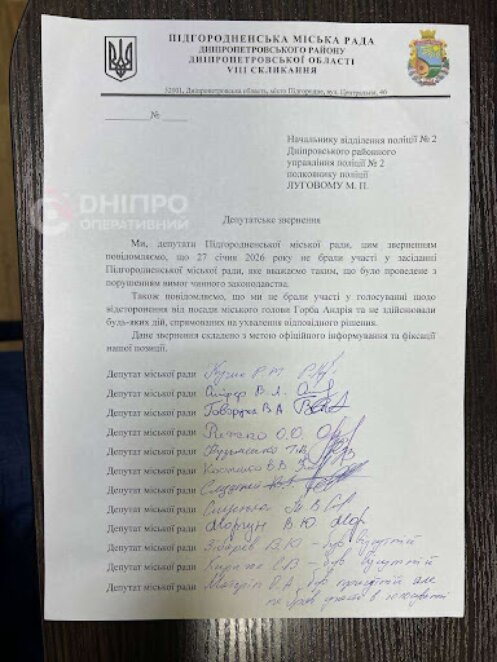 ПІДГОРОДНЕНСЬКА МІСЬКА РАДА
ДНІПРОПЕТРОВСЬКОГО РАЙОНУ
ДНІПРОПЕТРОВСЬКОЇ ОБЛАСТІ
VIII СКЛИКАННЯ
52001, Дніпропетровська область, місто Підгородне, вул. Центральна, 46
№
Начальнику відділення поліції № 2
Дніпровського районного
управління поліції № 2
полковнику поліції
ЛУГОВОМУ М. П.
ДНІПРО
ОПЕРАТИВНИЙ
Депутатське звернення
Ми, депутати Підгородненської міської ради, цим зверненням
повідомляємо, що 27 січня 2026 року не брали участі у засіданні
Підгородненської міської ради, яке вважаємо таким, що було проведене з
порушенням вимог чинного законодавства.
Також повідомляємо, що ми не брали участі у голосуванні щодо
відсторонення від посади міського голови Горба Андрія та не здійснювали
будь-яких дій, спрямованих на ухвалення відповідного рішення.
Дане звернення складено з метою офіційного інформування та фіксації
нашої позиції.
Депутат міської ради
Депутат міської ради В.
Депутат міської ради Говоруха В А
Депутат міської ради О.О.
Депутат міської ради Т.В.
Депутат міської ради Костюшко В.В
Депутат міської ради
Депутат міської ради
Депутат міської ради Моргун В Ю
Депутат міської ради В.Ю – був відсутній
Депутат міської ради С.В – був відсутній
Депутат міської ради був присутній але
не брав участі в голосуванні